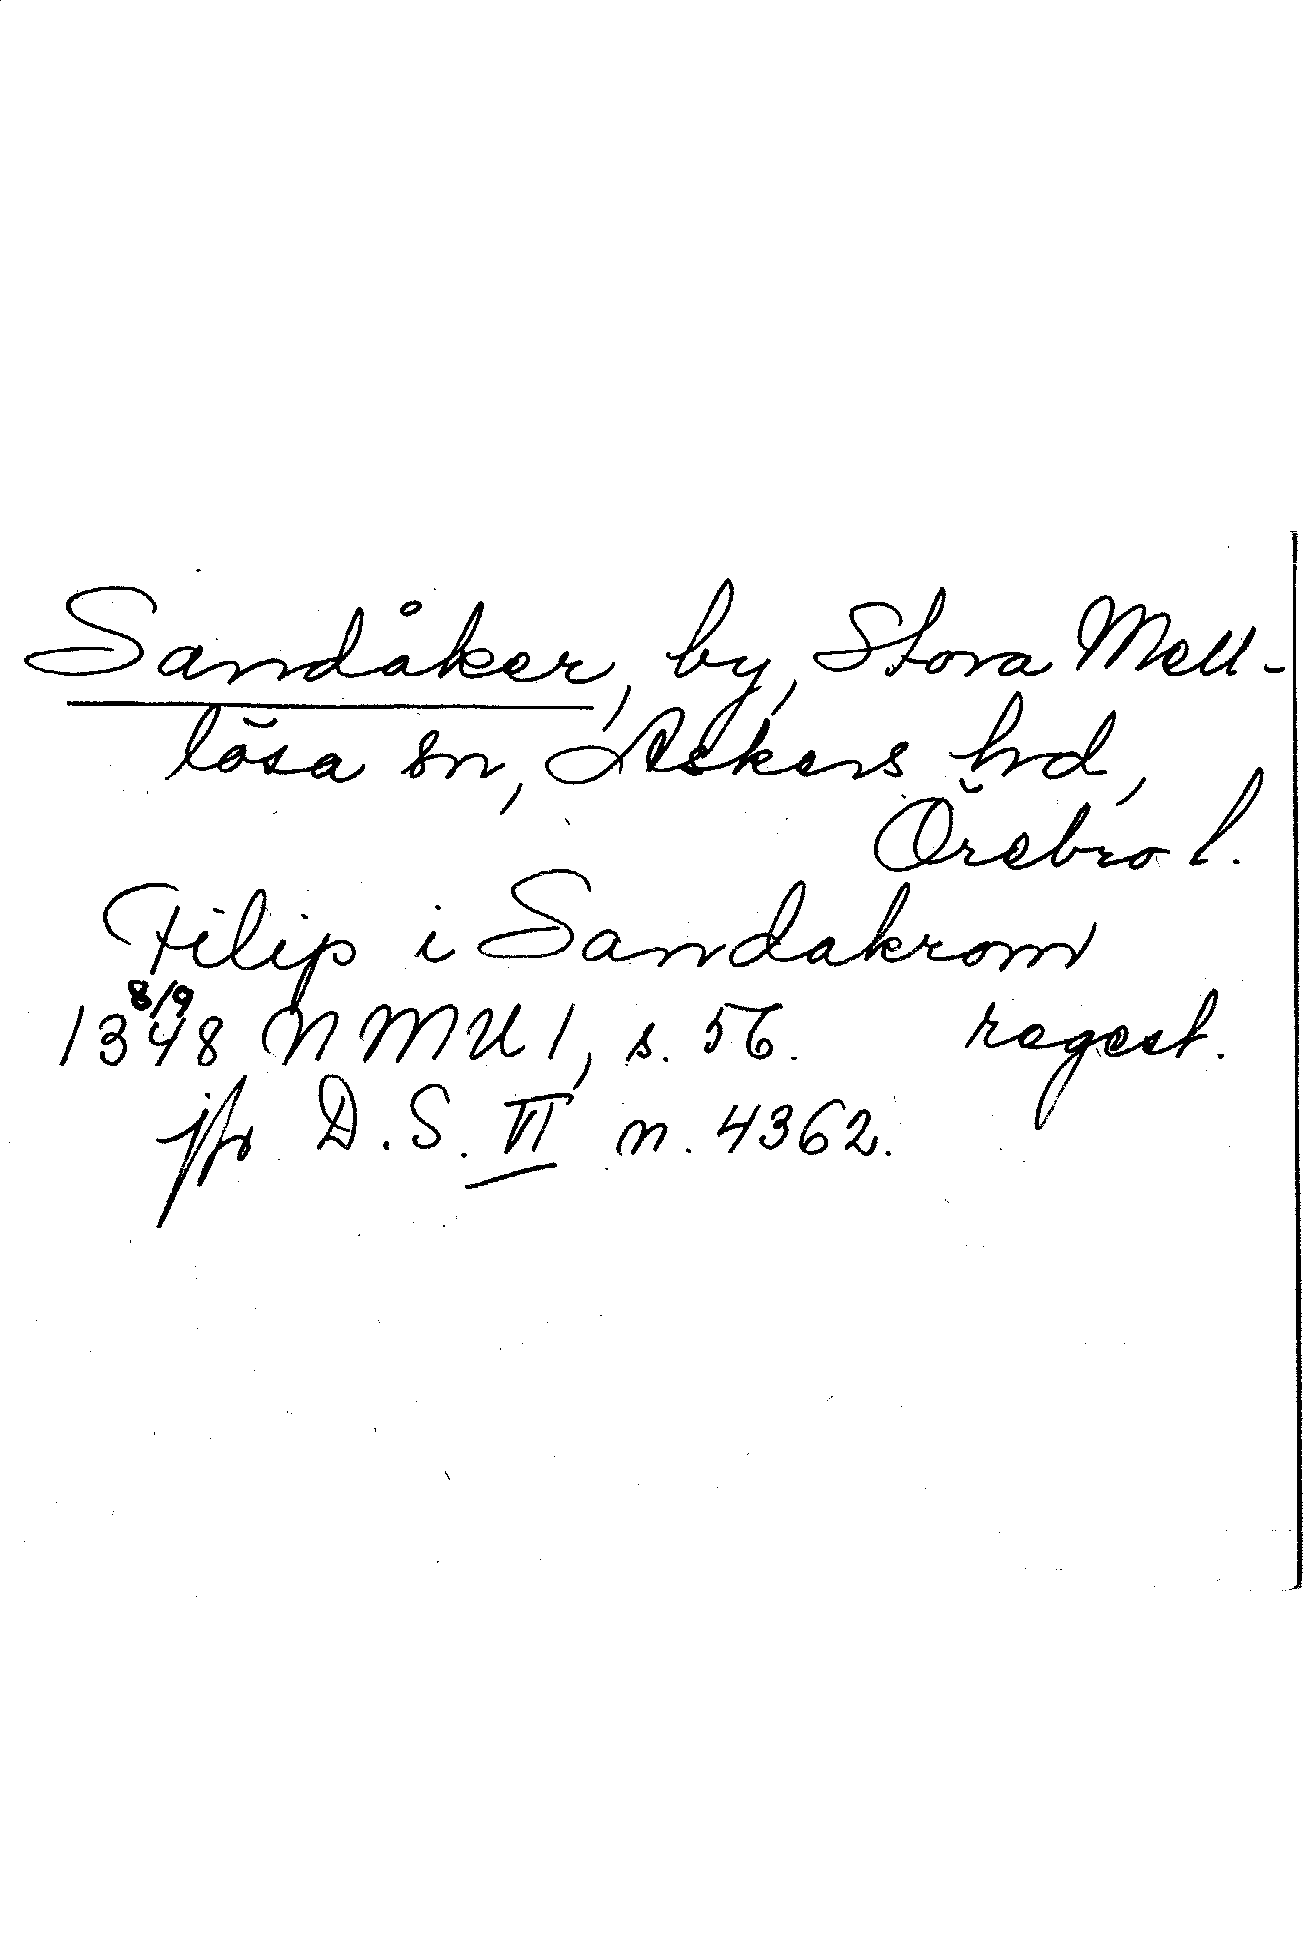 Sandåker, by, Stora Mell-
lösa sn, Askers hrd,
Örebro l.
Filip i Sandakrom
13 8/9 48 NMU 1, s. 56. regest.
jfr D.S. VI n. 4362.